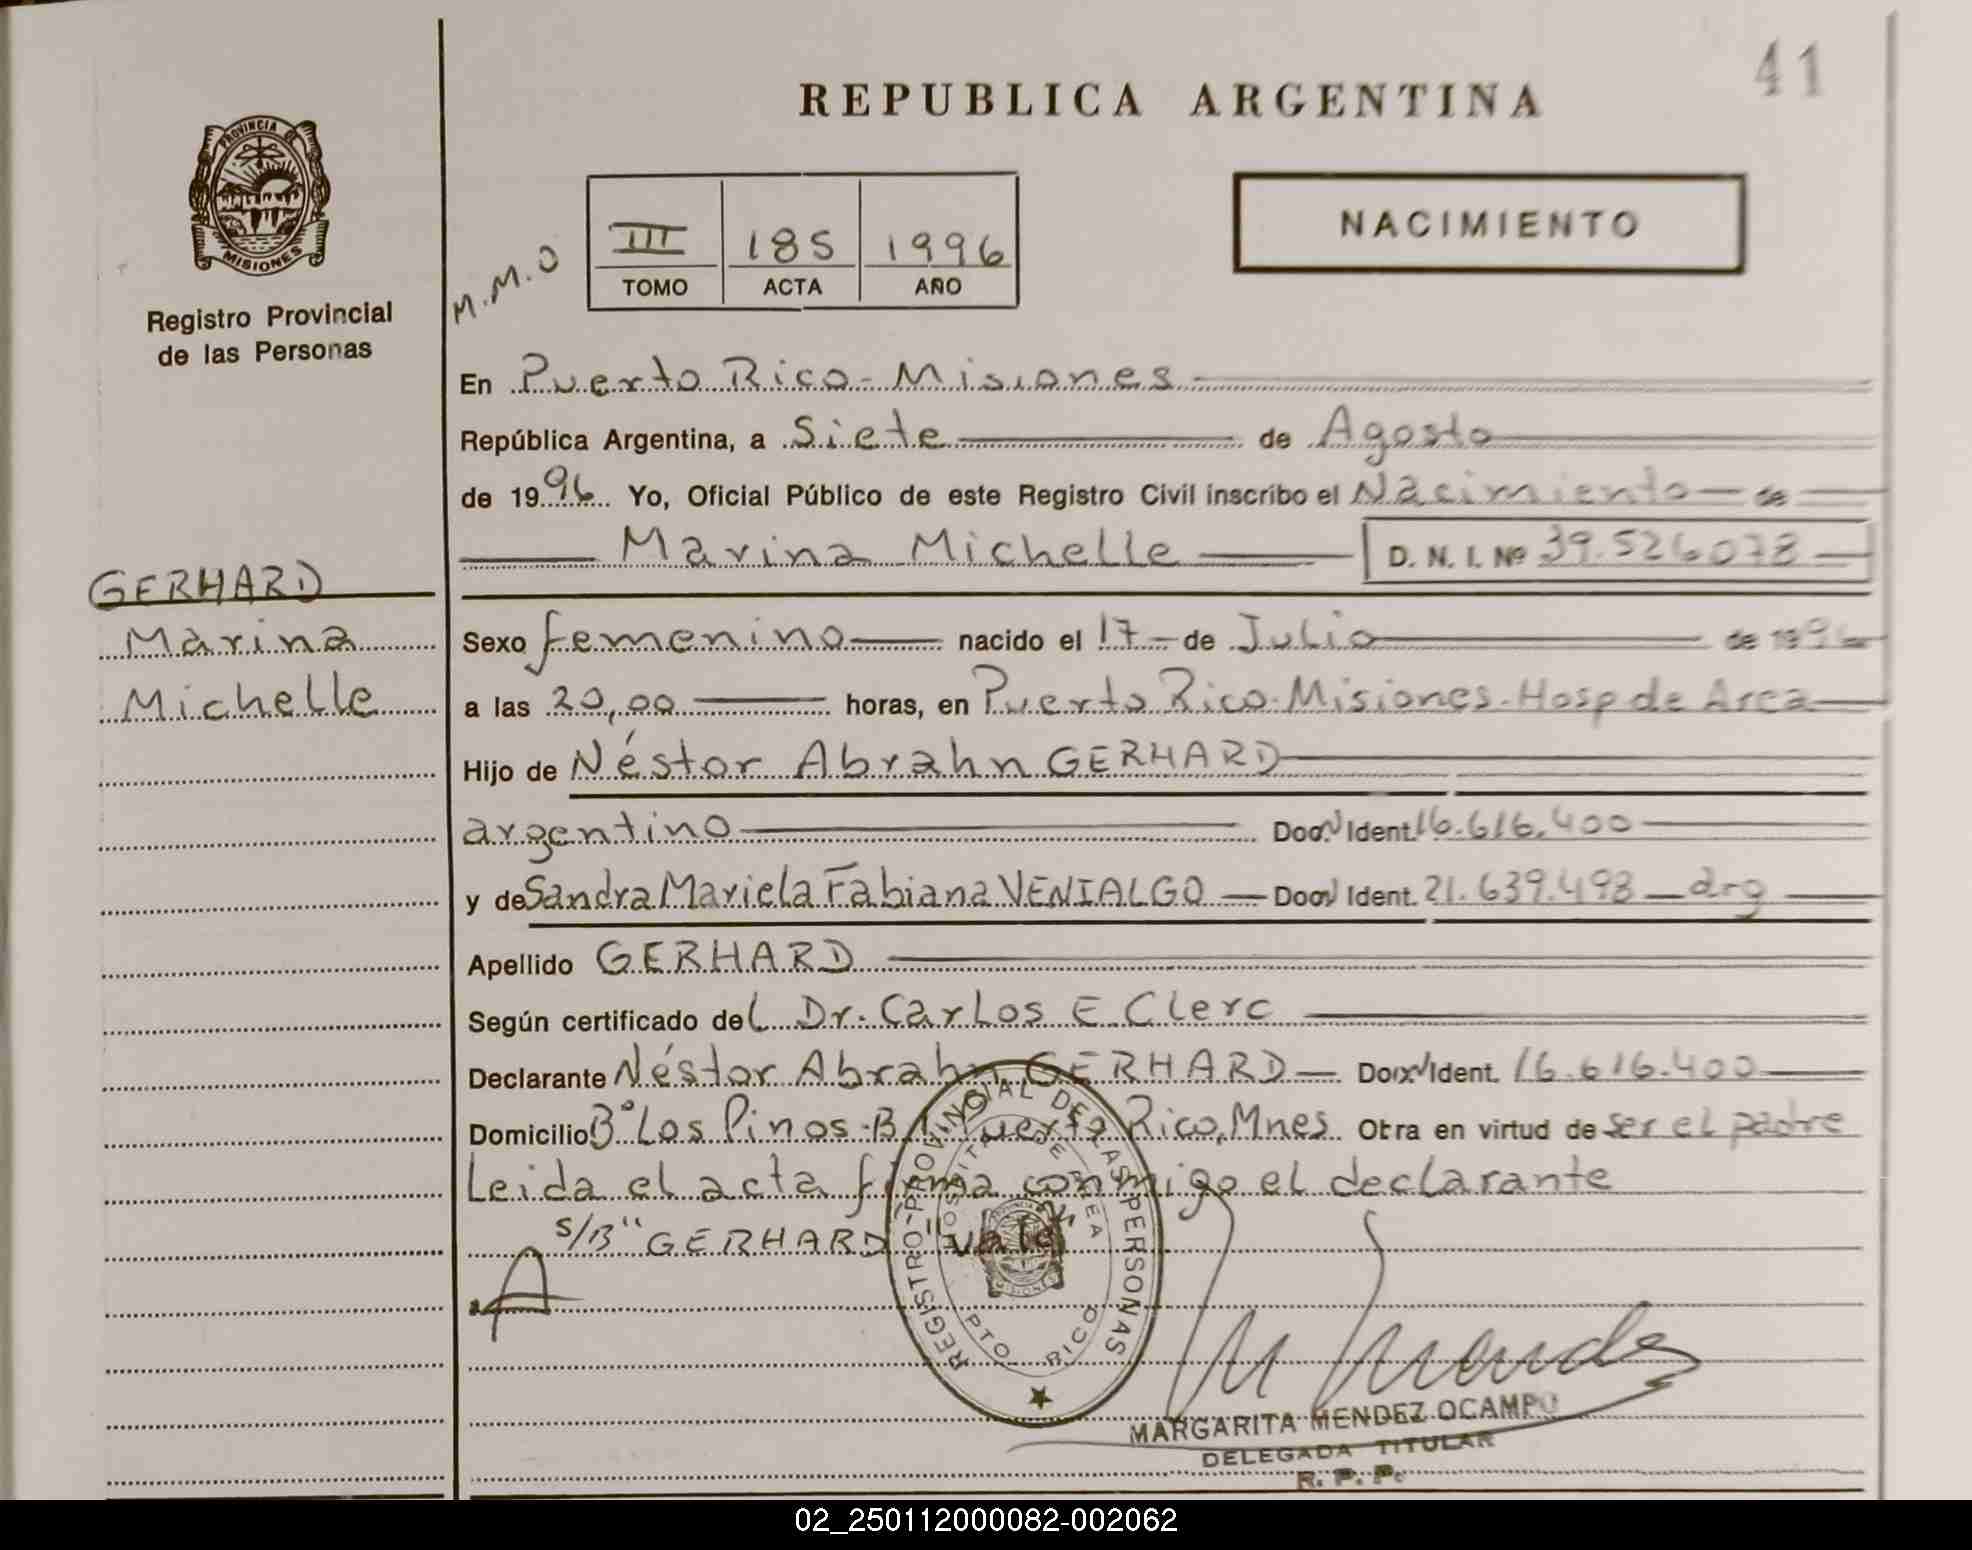 41
REPUBLICA ARGENTINA
PROVINCIA DE
MISIONES
Registro Provincial
de las Personas
M.M.O
III 185 1996
TOMO ACTA AÑO
NACIMIENTO
En Puerto Rico - Misiones
República Argentina, a Siete de Agosto
de 1996 Yo, Oficial Público de este Registro Civil inscribo el Nacimiento de
Marina Michelle D. N. I. Nº 39.526078
GERHARD
Marina
Michelle
Sexo femenino nacido el 17 de Julio de 1996
a las 20,00 horas, en Puerto Rico-Misiones-Hosp de Area
Hijo de Néstor Abrahn GERHARD
argentino Ident. 16.616.400
y de Sandra Mariela Fabiana VENIALGO Ident. 21.639.498 arg
Apellido GERHARD
Según certificado del Dr. Carlos E Clerc
Declarante Néstor Abrahn GERHARD Ident. 16.616.400
Domicilio Bº Los Pinos Puerto Rico, Mnes Obra en virtud de ser el padre
Leida el acta firma conmigo el declarante
S/B "GERHARD" Vale
REGISTRO PROVINCIAL DE LAS PERSONAS
HOSPITAL DE AREA
PTO RICO
M Mendez
MARGARITA MENDEZ OCAMPO
DELEGADA TITULAR
R. P. P.
02_250112000082-002062